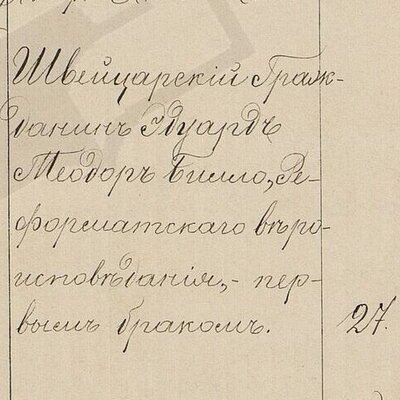 Швейцарскій Граж-
данинъ Эдуардъ
Теодоръ Билло, Ре-
форматскаго вѣро-
исповѣданія,- пер-
вымъ бракомъ.
27.